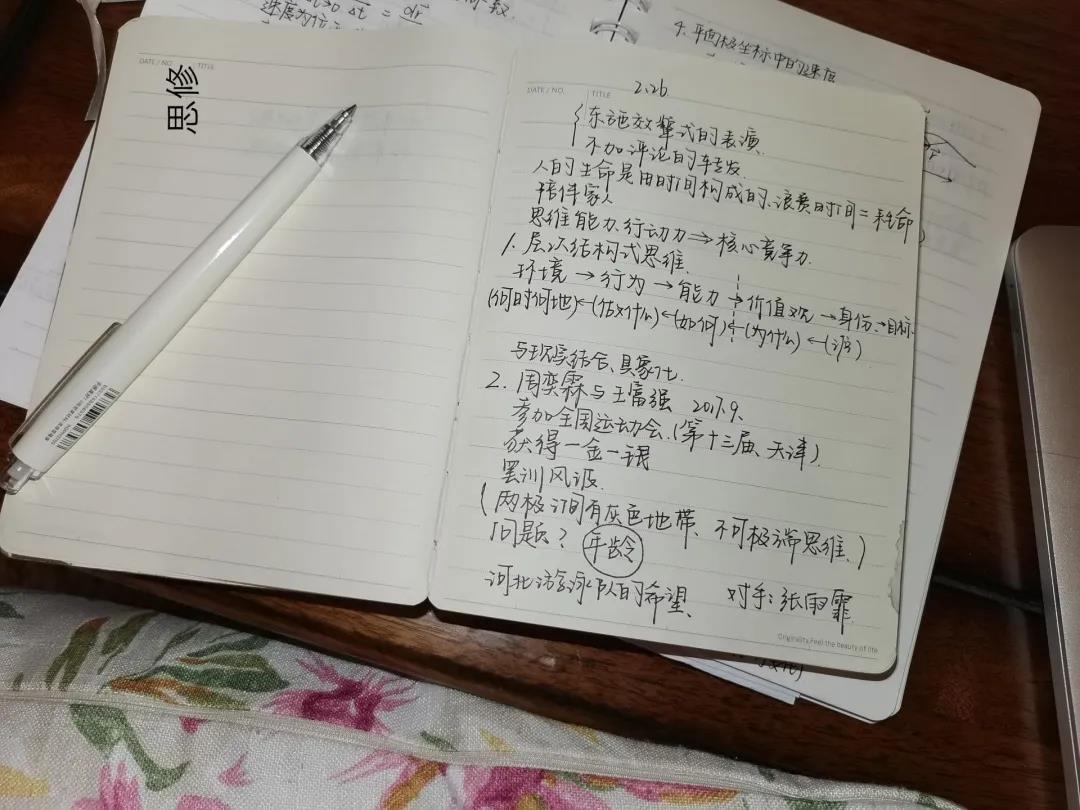 进度为位
4. 平面极坐标中的速度
DATE / NO.
TITLE
思修
DATE / NO.
TITLE
2.26
东施效颦式的表演
不加评论的转发
人的生命是由时间构成的、浪费时间=耗命
陪伴家人
思维能力、行动力⇒核心竞争力.
1. 层次结构式思维.
环境→行为→能力→价值观→身份→目标.
(何时何地)←(做什么)←(如何)←(为什么)←(谁)
与现实结合、具象化.
2. 周奕霖与王富强 2017.9.
参加全国运动会.(第十三届、天津).
获得一金一银
罢训风波
(两极间有灰色地带、不可极端思维.)
问题? 年龄
河北游泳队的希望、 对手:张雨霏.
Originality.Feel the beauty of life